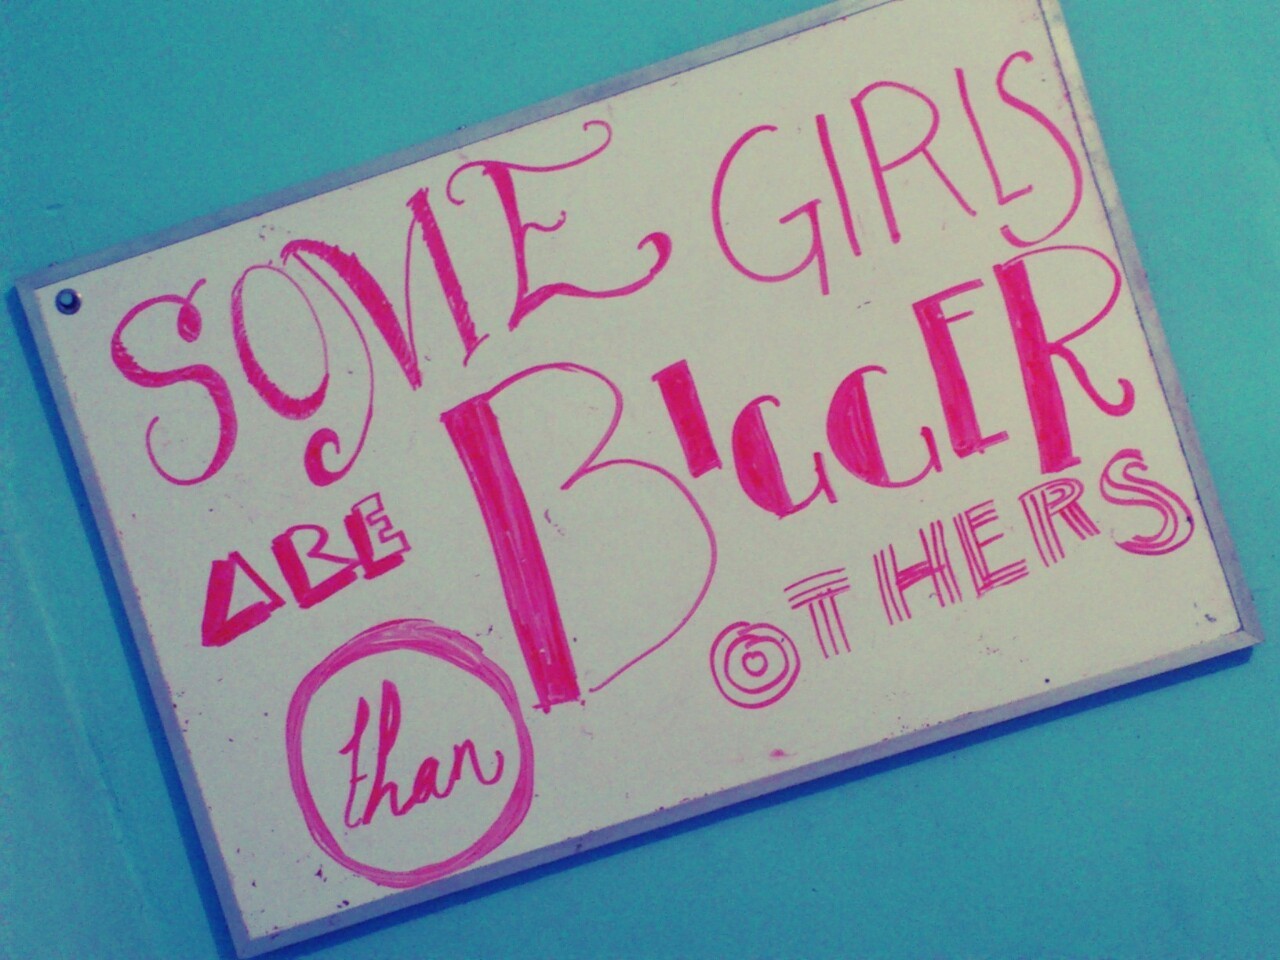 SOME GIRLS
ARE BIGGER
than OTHERS